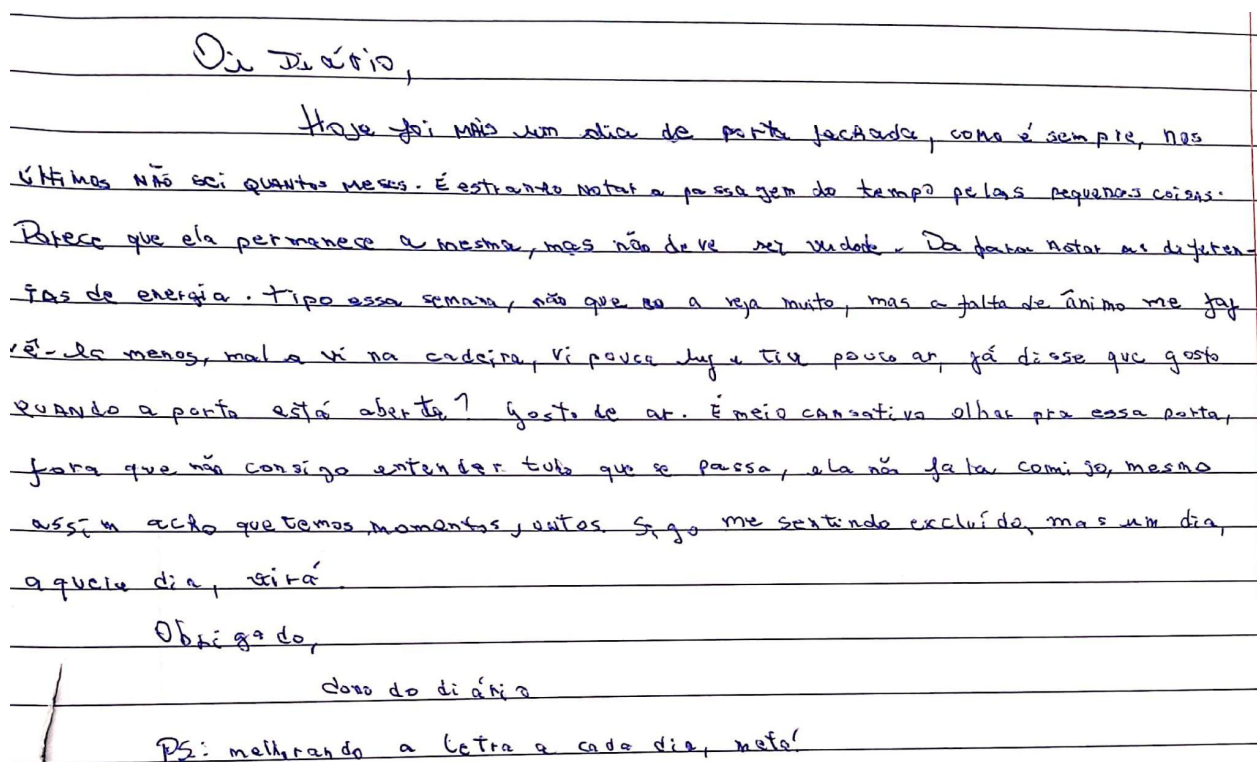 Oi Diário,
Hoje foi mais um dia de porta fachada, como é sempre, nos
últimos não sei quantos meses. É estranho notar a passagem do tempo pelas pequenas coisas.
Parece que ela permanece a mesma, mas não deve ser verdade. Da para notar as diferen-
ças de energia. Tipo essa semana, não que eu a veja muito, mas a falta de ânimo me faz
vê-la menos, mal a vi na cadeira, vi pouca luz e tive pouco ar, já disse que gosto
quando a porta está aberta? Gosto de ar. É meio cansativo olhar pra essa porta,
fora que não consigo entender tudo que se passa, ela não fala comigo, mesmo
assim acho que temos momentos juntos. Sigo me sentindo excluído, mas um dia,
aquele dia, virá
Obrigado,
dono do diário
PS: melhrando a letra a cada dia, meta!